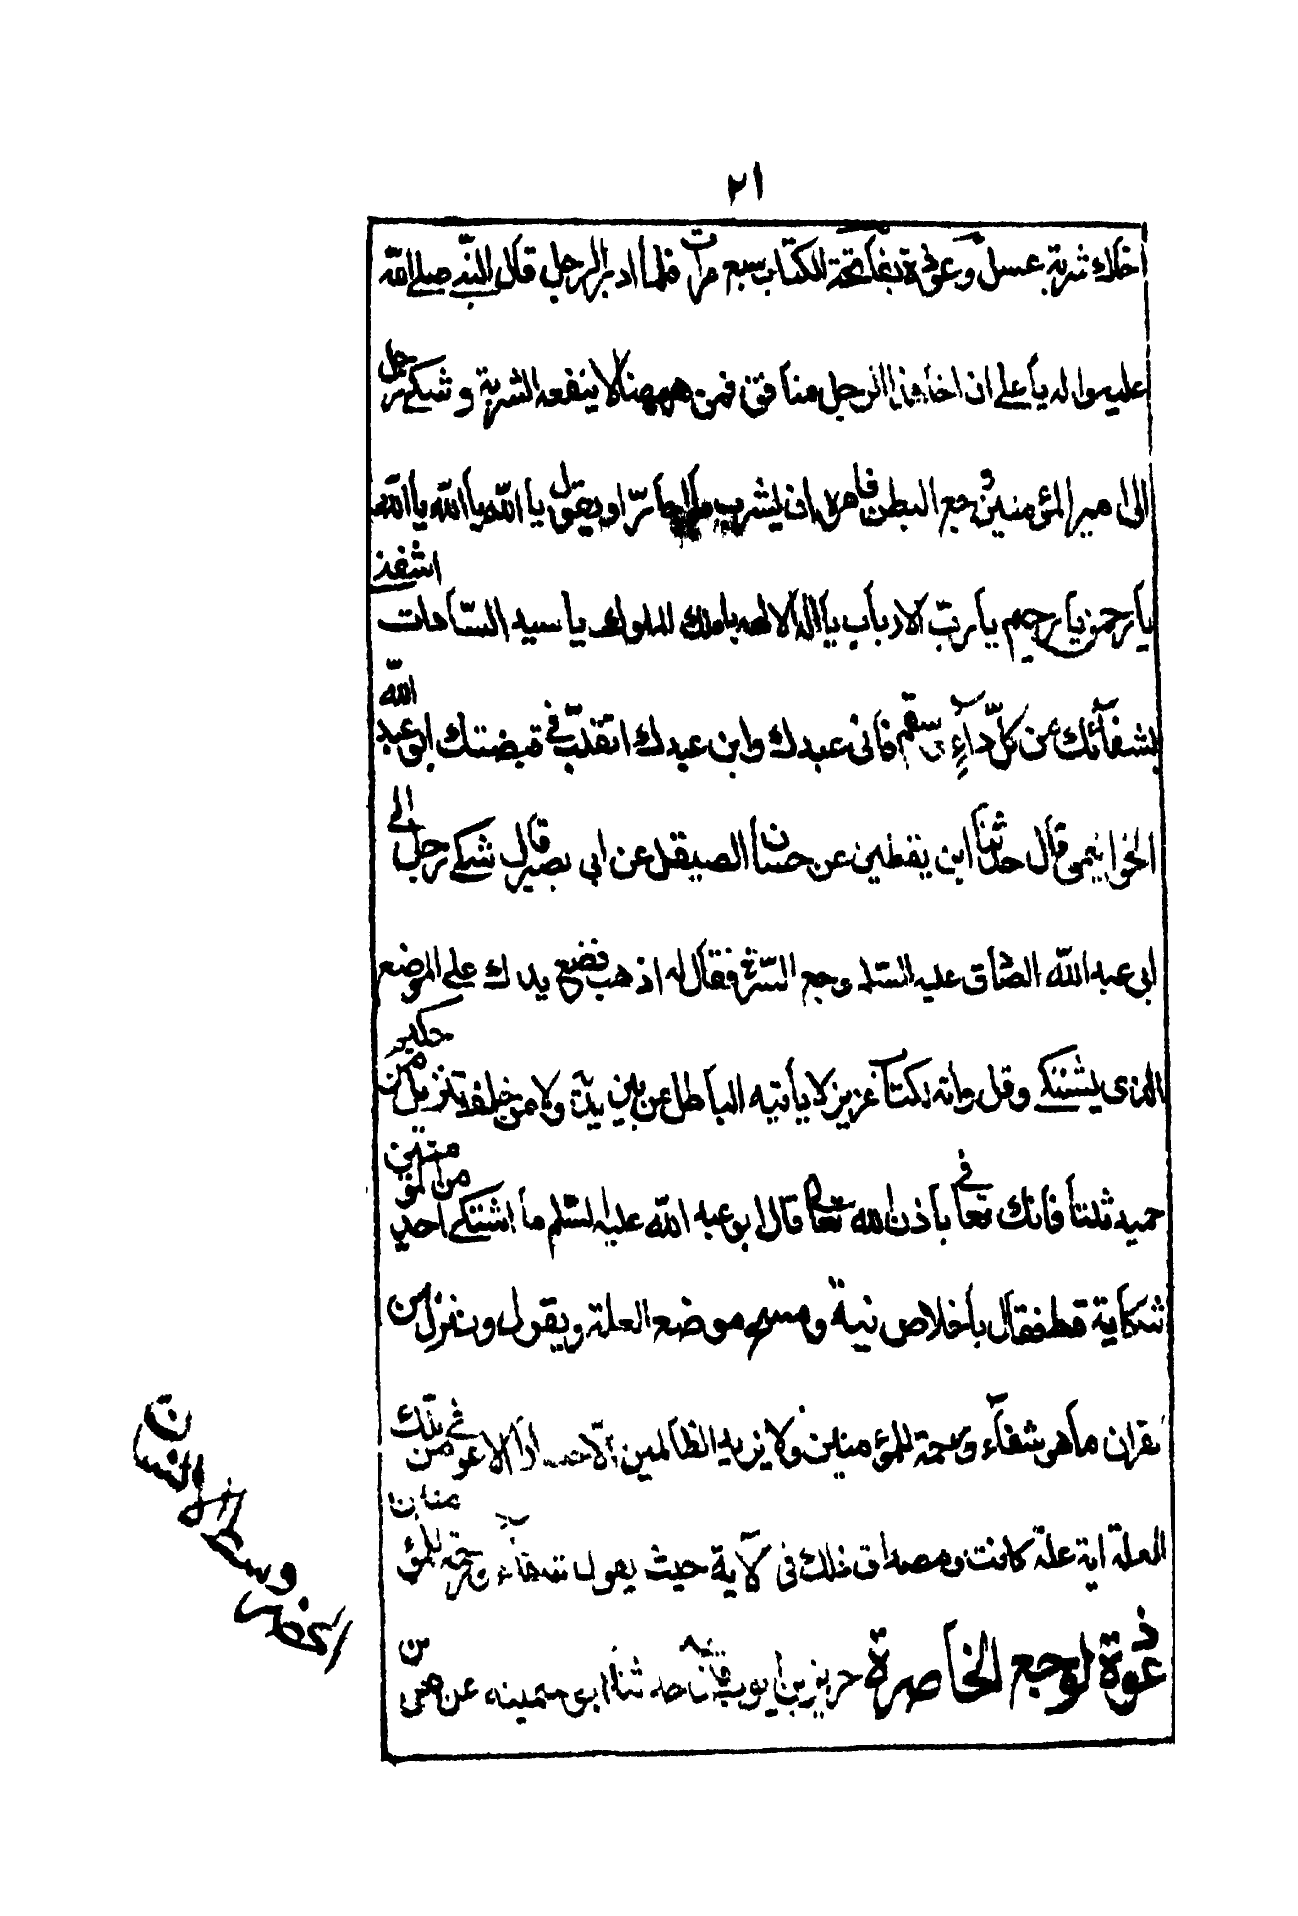 ٢١
خاك شربة عسل وعوذة بفاتحة الكتاب سبع مرات فلما ادبر الرجل قال النبى صلى الله
عليه واله يا على ان اخا هذا الرجل منافق فمن ههنا لا ينفعه الشربة و شكى رجل
الى امير المؤمنين وجع البطن فامره ان يشرب ماء حارّا ويقول يا الله يا الله يا الله
يا رحمن يا رحيم يا ربّ الارباب يا اله الالهه يا ملك الملوك يا سيد السّادات اشفنى
بشفائك من كلّ داءٍ وسقم فانى عبدك وابن عبدك اتقلّب فى قبضتك ابو عبد الله
الخواتيمى قال حدثنا ابن يقطين عن حسان الصيقل عن ابى بصير قال شكى رجل الى
ابى عبد الله الصّادق عليه السّلم وجع السّرة فقال له اذهب فضع يدك على الموضع
الذى يشتكى وقل وانّه لكتاب عزيز لا ياتيه الباطل من بين يديه ولا من خلفه تنزيل من حكيم
حميد ثلثا فانك تعافى باذن الله تعالى قال ابو عبد الله عليه السّلم ما اشتكى احد من المؤمنين
شكاية قط فقال باخلاص نية ومسح موضع العلة ويقول وننزل من
القران ما هو شفاء ورحمة للمؤمنين ولا يزيد الظالمين الّا خسارا الا عوفى من تلك
العلة اية علة كانت ومصداق ذلك فى الاية حيث يقول شفاء ورحمة للمؤمنين
عوذة لوجع الخاصرة حريز بن ايوب قال حدثنا ابى سمينه عن
الخصر وسط الانسان
ق